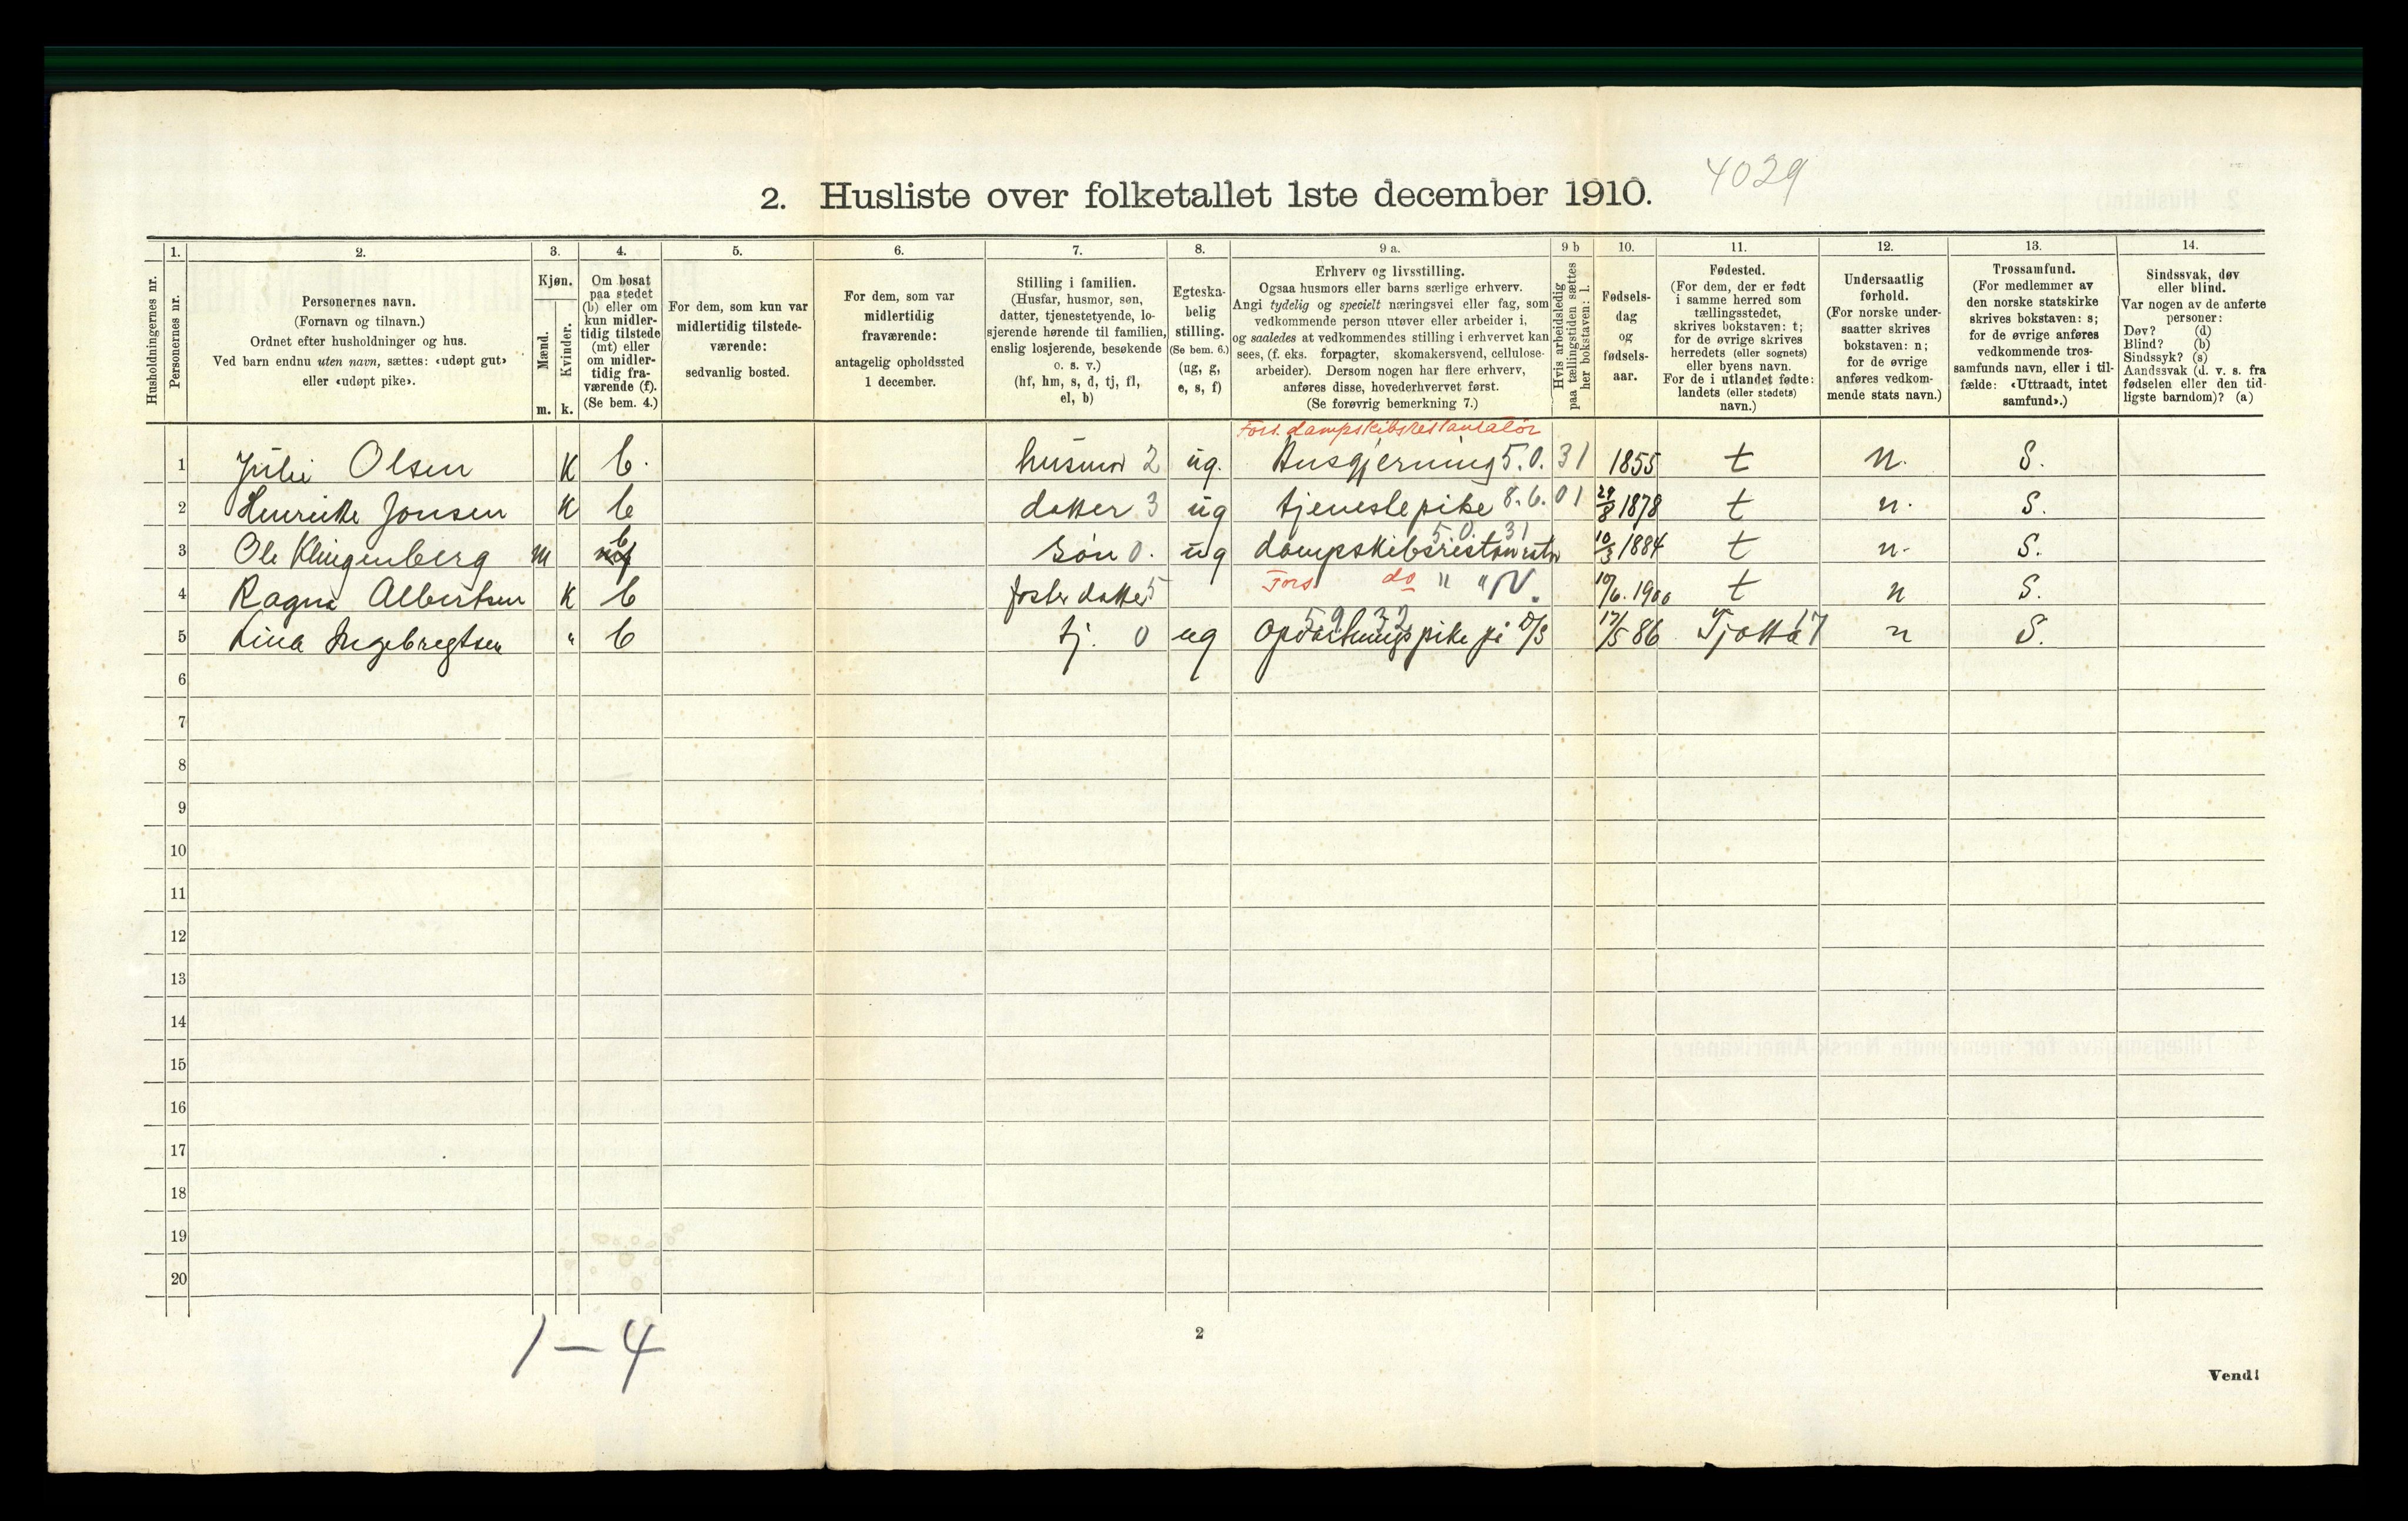 4029
2. Husliste over folketallet 1ste december 1910.
1. 2. 3. 4. 5. 6. 7. 8. 9 a. 9 b 10. 11. 12. 13. 14.
Husholdningernes nr.
Personernes nr.
Personernes navn.
(Fornavn og tilnavn.)
Ordnet efter husholdninger og hus.
Ved barn endnu uten navn, sættes: «udøpt gut»
eller «udøpt pike».
Kjøn.
Mænd.
Kvinder.
m. k.
Om bosat
paa stedet
(b) eller om
kun midler-
tidig tilstede
(mt) eller
om midler-
tidig fra-
værende (f).
(Se bem. 4.)
For dem, som kun var
midlertidig tilstede-
værende:
sedvanlig bosted.
For dem, som var
midlertidig
fraværende:
antagelig opholdssted
1 december.
Stilling i familien.
(Husfar, husmor, søn,
datter, tjenestetyende, lo-
sjerende hørende til familien,
enslig losjerende, besøkende
o. s. v.)
(hf, hm, s, d, tj, fl,
el, b)
Egteska-
belig
stilling.
(Se bem. 6.)
(ug, g,
e, s, f)
Erhverv og livsstilling.
Ogsaa husmors eller barns særlige erhverv.
Angi tydelig og specielt næringsvei eller fag, som
vedkommende person utøver eller arbeider i,
og saaledes at vedkommendes stilling i erhvervet kan
sees, (f. eks. forpagter, skomakersvend, cellulose-
arbeider). Dersom nogen har flere erhverv,
anføres disse, hovederhvervet først.
(Se forøvrig bemerkning 7.)
Hvis arbeidsledig
paa tællingstiden sættes
her bokstaven: l.
Fødsels-
dag
og
fødsels-
aar.
Fødested.
(For dem, der er født
i samme herred som
tællingsstedet,
skrives bokstaven: t;
for de øvrige skrives
herredets (eller sognets)
eller byens navn.
For de i utlandet fødte:
landets (eller stedets)
navn.)
Undersaatlig
forhold.
(For norske under-
saatter skrives
bokstaven: n;
for de øvrige
anføres vedkom-
mende stats navn.)
Trossamfund.
(For medlemmer av
den norske statskirke
skrives bokstaven: s;
for de øvrige anføres
vedkommende tros-
samfunds navn, eller i til-
fælde: «Uttraadt, intet
samfund».)
Sindssvak, døv
eller blind.
Var nogen av de anførte
personer:
Døv? (d)
Blind? (b)
Sindssyk? (s)
Aandssvak (d. v. s. fra
fødselen eller den tid-
ligste barndom)? (a)
Fors. dampskibsrestauratør
1 Julie Olsen K b. husmor 2 ug. Husgjerning 5.0. 31 1855 t n. S.
2 Henrikke Jonsen K b datter 3 ug tjenestepike 8.6. 01 29/8 1878 t n. S.
5.0. 31
3 Ole Klingenberg m b søn 0. ug 10/3 1884 t n. S.
4 Ragna Albertsen K b foster datter 5 Fors do " " 10/6. 1900 t n S.
59 32
5 Lina Ingebregtsen " b tj. 0 ug Opvartningspike på D/S 17/5 86 Tjøtta 17 n S.
6
7
8
9
10
11
12
13
14
15
16
17
18
19
20
1 – 4
2
Vend!